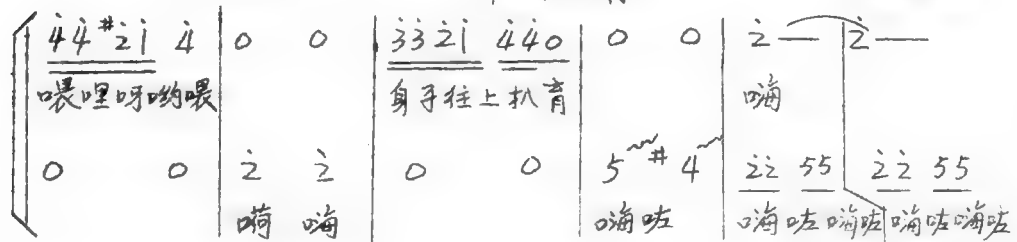 4̇ 4̇ #2̇ 1̇ 4̇ | 0 0 | 3̇ 3̇ 2̇ 1̇ 4̇ 4̇ 0 | 0 0 | 2̇ — | 2̇ —
喂嘿呀哟喂 身子往上扒育 嗨
0 0 | 2̇ 2̇ | 0 0 | 5 #4 | 2̇2̇ 55 | 2̇2̇ 55
嗬 嗨 嗨咗 嗨咗嗨咗 嗨咗嗨咗